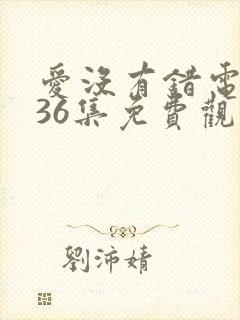 愛沒有錯電
36集免費觀
劉沛婧